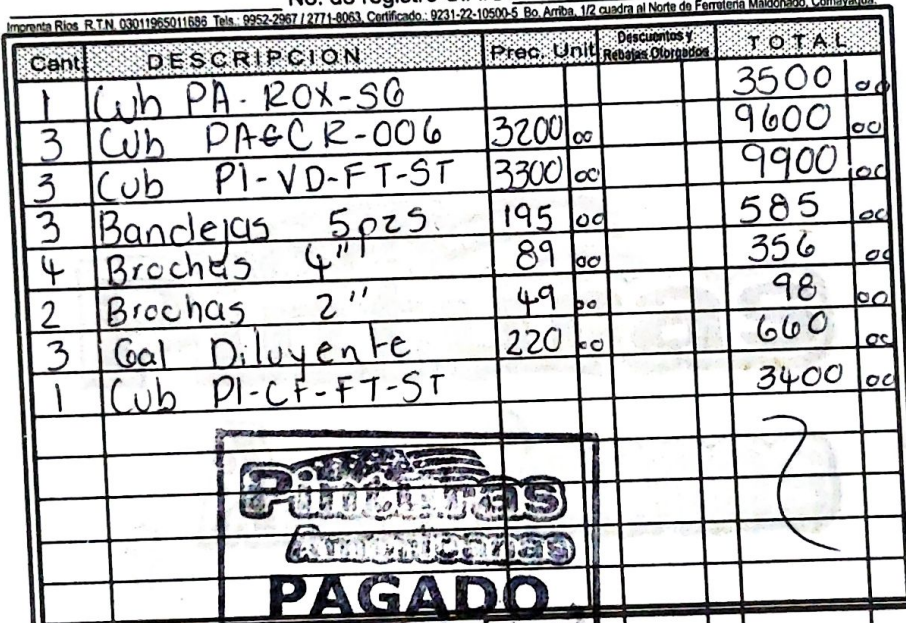 No. de registro
Imprenta Rios R.T.N. 03011965011686 Tels.: 9952-2967 / 2771-8063, Certificado.: 9231-22-10500-5 Bo. Arriba, 1/2 cuadra al Norte de Ferretería Maldonado, Comayagua.
Cant. DESCRIPCION Prec. Unit. Descuentos y Rebajas Otorgados TOTAL
1 Cub PA-ROX-SG 3500 00
3 Cub PAECR-006 3200 00 9600 00
3 Cub PI-VD-FT-ST 3300 00 9900 00
3 Bandejas 5pzs. 195 00 585 00
4 Brochas 4" 89 00 356 00
2 Brochas 2" 49 00 98 00
3 Gal Diluyente 220 00 660 00
1 Cub PI-CF-FT-ST 3400 00
Pinturas
Americanas
PAGADO